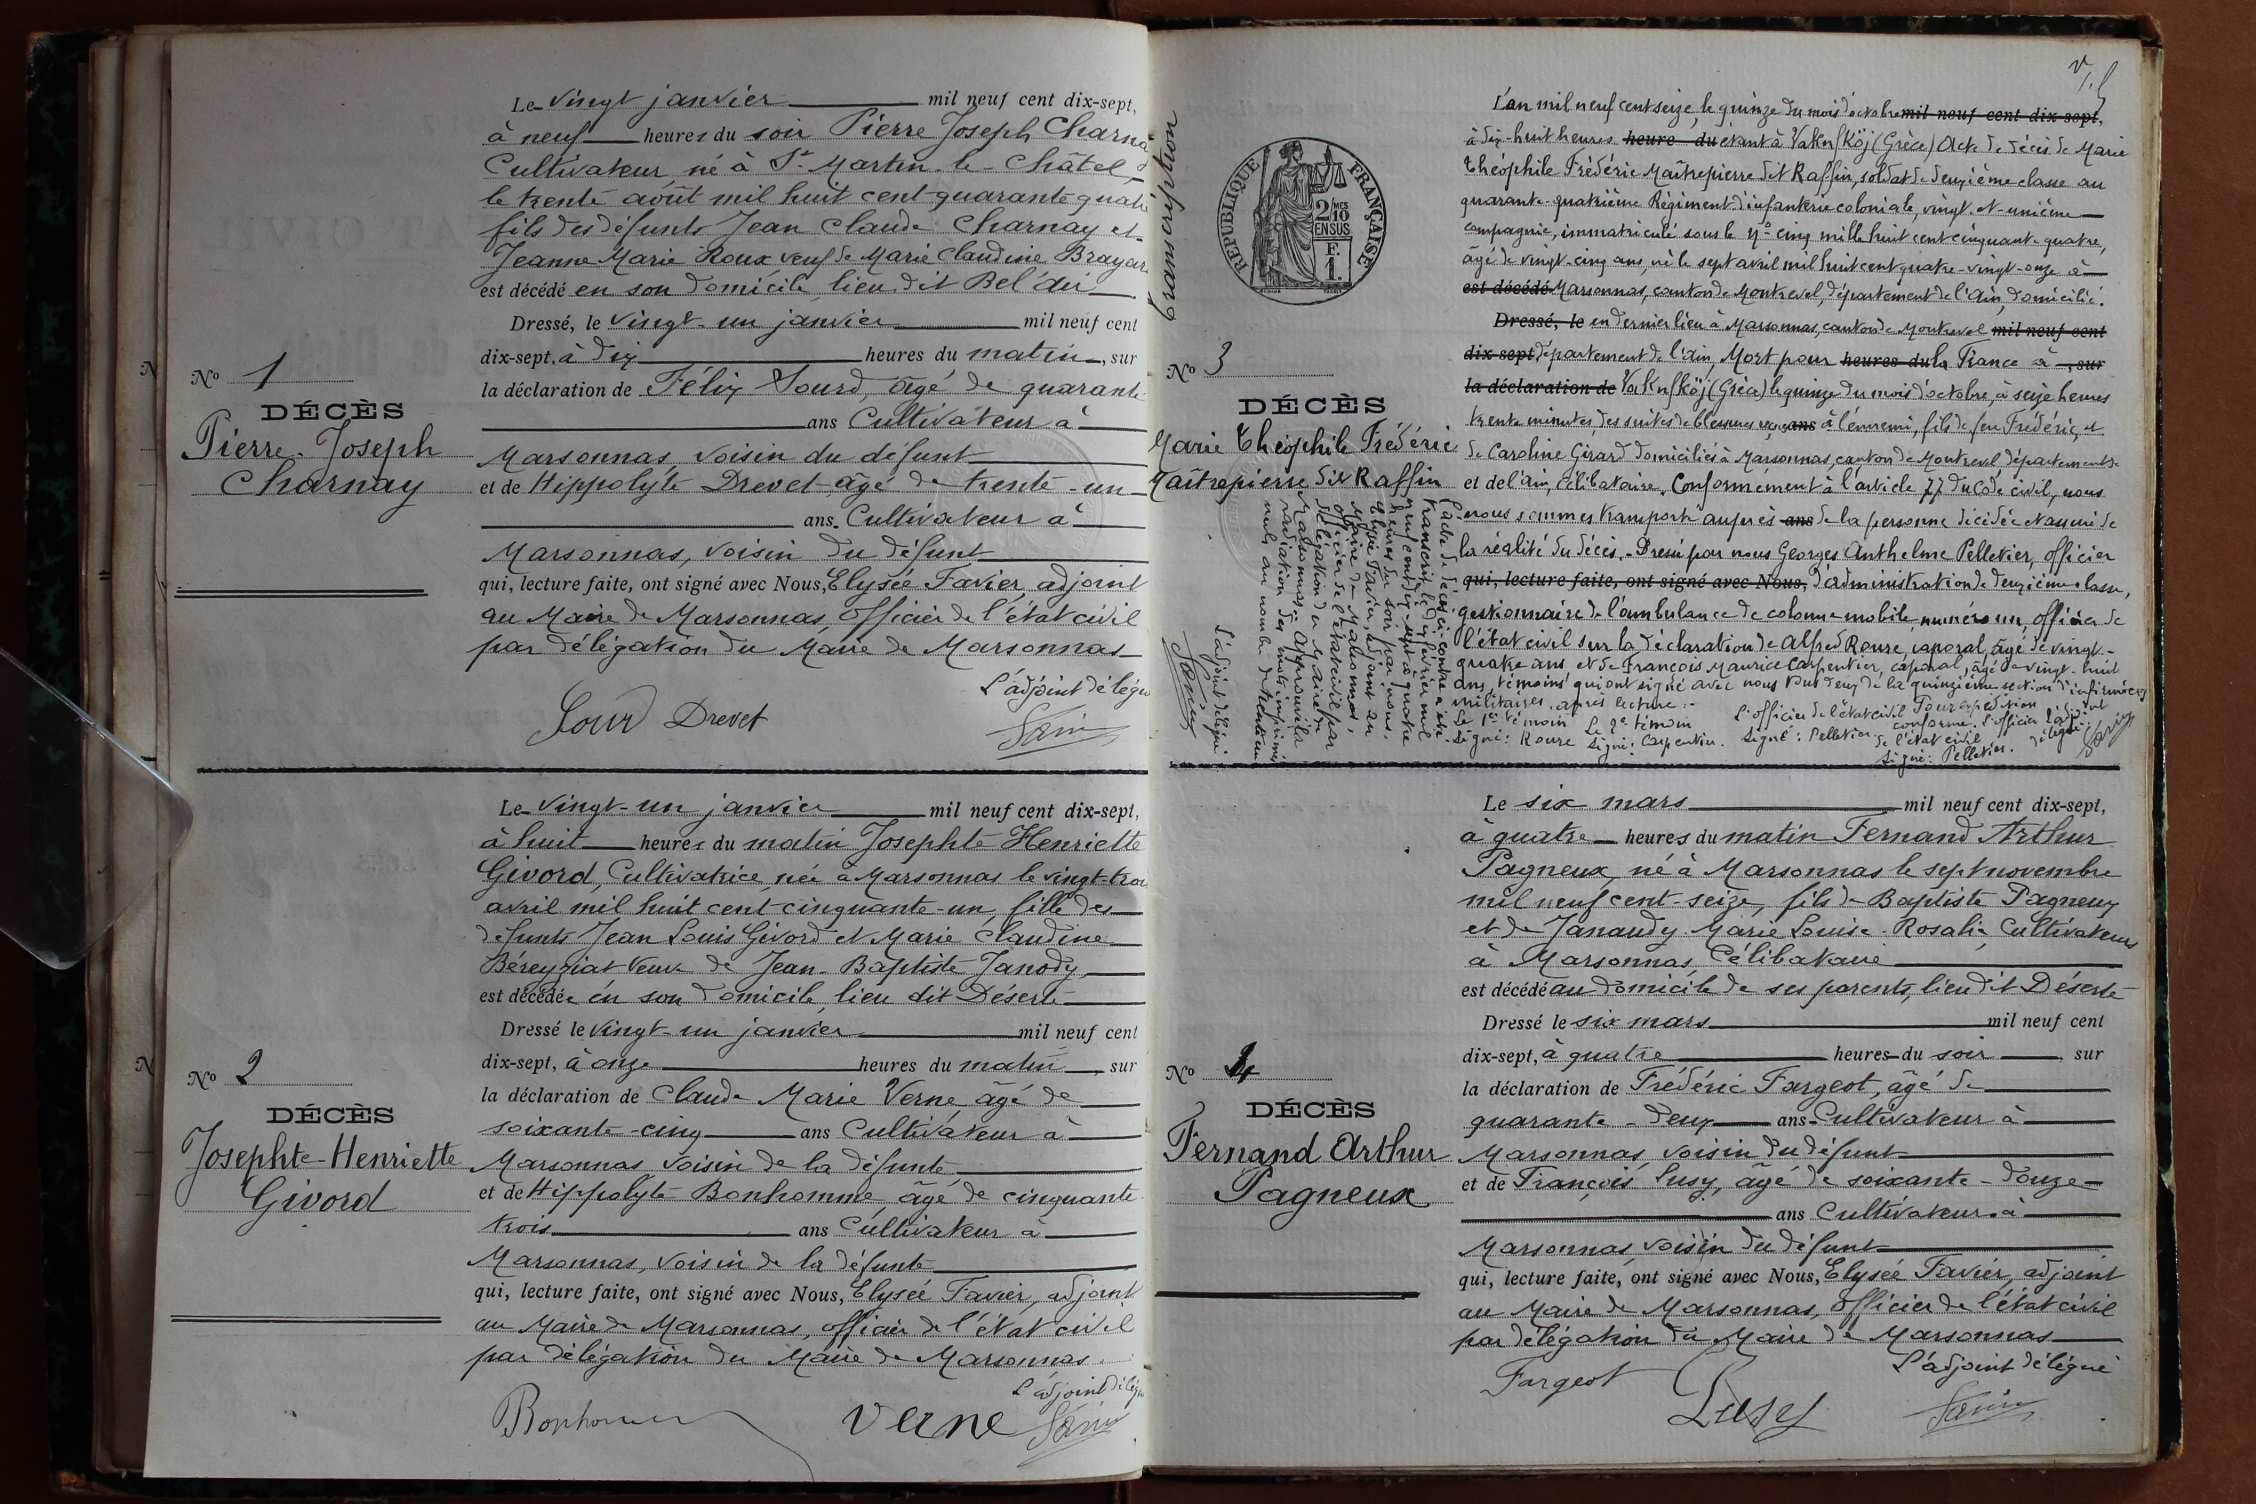 Le vingt janvier mil neuf cent dix-sept,
à neuf heures du soir Pierre Joseph Charna
Cultivateur, né à St Martin-le-Châtel,
le trente août mil huit cent quarante quatr
fils des défunts Jean Claude Charnay et
Jeanne Marie Roux veuf de Marie Claudine Brayar
est décédé en son domicile, lieu dit Bel'air
Dressé, le vingt-un janvier mil neuf cent
dix-sept, à dix heures du matin, sur
la déclaration de Félix Sourd, âgé de quarante
ans Cultivateur à
Marsonnas voisin du défunt
et de Hippolyte Drevet âgé de trente-un
ans. Cultivateur à
Marsonnas, voisin du défunt
qui, lecture faite, ont signé avec Nous, Elysée Favier, adjoint
au Maire de Marsonnas, officier de l'état civil
par délégation du Maire de Marsonnas
L'adjoint délégué
Sourd Drevet
Favier
No 1
DÉCÈS
Pierre-Joseph
Charnay
Le vingt-un janvier mil neuf cent dix-sept,
à huit heures du matin Josephte Henriette
Givord, Cultivatrice, née à Marsonnas le vingt-troi
avril mil huit cent cinquante-un, fille des
défunts Jean Louis Givord et Marie Claudine
Béreyziat Veuve de Jean-Baptiste Janody
est décédée en son domicile, lieu dit Déserte
Dressé le vingt-un janvier mil neuf cent
dix-sept, à onze heures du matin, sur
la déclaration de Claude Marie Verne âgé de
soixante-cinq ans Cultivateur à
Marsonnas voisin de la défunte
et de Hippolyte Bonhomme, âgé de cinquante
trois ans Cultivateur à
Marsonnas, voisin de la défunte
qui, lecture faite, ont signé avec Nous, Elysée Favier, adjoint
au Maire de Marsonnas, officier de l'état civil
par délégation du Maire de Marsonnas.
L'adjoint délégué
Bonhomme Verne Favier
No 2
DÉCÈS
Josephte-Henriette
Givord
Transcription
RÉPUBLIQUE FRANÇAISE
2 MES
10
EN SUS
F.
1.
No 3
DÉCÈS
Marie Théophile Frédéric
Maîtrepierre dit Raffin
L'acte de décès ci-contre a été
transcrit le dix février mil
neuf cent dix-sept à quatre
heures du soir, par nous,
Elysée Favier, adjoint au
Maire de Marsonnas,
officier de l'état civil par
délégation du Maire de
Marsonnas. Approuvé la
radiation des mots imprimés
nuls au nombre de
L'adjoint délégué
Favier
L'an mil neuf cent seize, le quinze du mois d'octobre mil neuf cent dix-sept,
à dix-huit heures heure du étant à Vakuf Köj (Grèce) Acte de décès de Marie
Théophile Frédéric Maîtrepierre dit Raffin, soldat de deuxième classe au
quarante-quatrième Régiment d'infanterie coloniale, vingt-et-unième
compagnie, immatriculé sous le No cinq mille huit cent cinquante-quatre,
âgé de vingt-cinq ans, né le sept avril mil huit cent quatre-vingt-onze à
est décédé Marsonnas, canton de Montrevel, département de l'Ain, domicilié
Dressé, le en dernier lieu à Marsonnas, canton de Montrevel mil neuf cent
dix-sept département de l'Ain, Mort pour heures du la France à , sur
la déclaration de Vakuf Köj (Grèce) le quinze du mois d'octobre, à seize heures
trente minutes, des suites de blessures ans à l'ennemi, fils de feu Frédéric, et
de Caroline Girard domiciliés à Marsonnas, canton de Montrevel département
et de l'Ain, célibataire. Conformément à l'article 77 du Code civil, nous
nous sommes transporté auprès ans de la personne décédée et assuré de
la réalité du décès. Dressé par nous Georges Anthelme Pelletier, officier
qui, lecture faite, ont signé avec Nous, d'administration de deuxième classe,
gestionnaire de l'ambulance de colonne mobile, numéro un, officier de
l'état civil sur la déclaration de Alfred Roure, caporal, âgé de vingt-
quatre ans et de François Maurice Carpentier, caporal, âgé de vingt-huit
ans, témoins qui ont signé avec nous tous deux de la quinzième section d'infirmiers
militaires, après lecture.
Le 1er témoin Le 2e témoin L'officier de l'état civil Pour expédition
Signé: Roure Signé: Carpentier. Signé: Pelletier conforme. L'officier
de l'état civil
Signé: Pelletier.
L'adjoint
délégué
Favier
Le six mars mil neuf cent dix-sept,
à quatre heures du matin Fernand Arthur
Pagneux, né à Marsonnas le sept novembre
mil neuf cent-seize, fils de Baptiste Pagneux
et de Janaudy Marie Louise-Rosalie Cultivateurs
à Marsonnas, Célibataire
est décédé au domicile de ses parents, lieu dit Déserte
Dressé le six mars mil neuf cent
dix-sept, à quatre heures du soir, sur
la déclaration de Frédéric Fargeot, âgé de
quarante-deux ans Cultivateur à
Marsonnas, voisin du défunt
et de François Susy, âgé de soixante-douze
ans Cultivateur à
Marsonnas, voisin du défunt
qui, lecture faite, ont signé avec Nous, Elysée Favier, adjoint
au Maire de Marsonnas, officier de l'état civil
par délégation du Maire de Marsonnas
L'adjoint délégué
Fargeot Susy Favier
No 4
DÉCÈS
Fernand Arthur
Pagneux